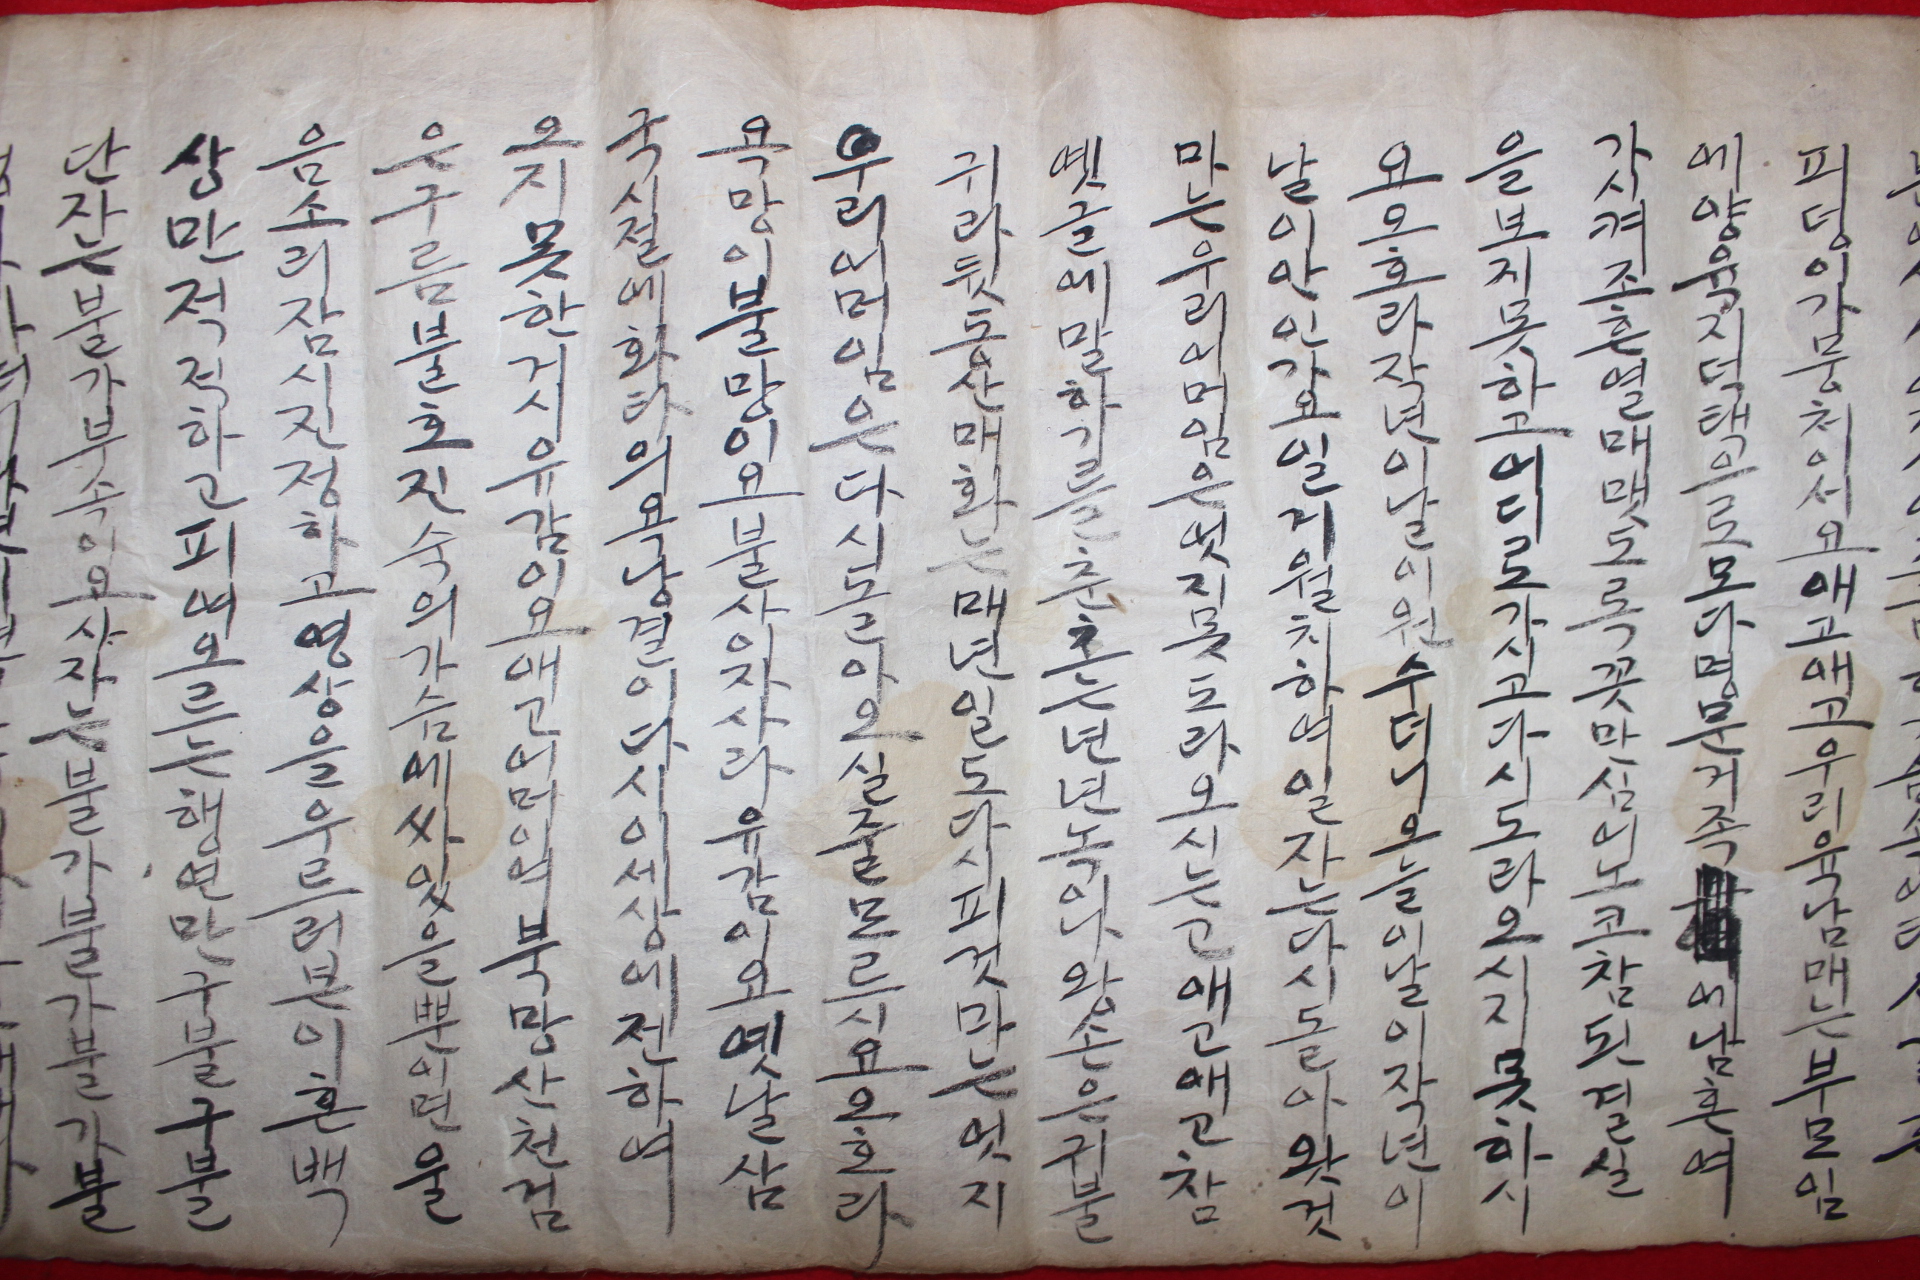 피덩이가뭉처서요애고애고우리육남매는부모임
에양육지덕택으로모다명문거족에남혼여
가시켜조흔열매맷도록꽃만심어노코참된결실
을보지못하고어디로가시고다시도라오시지못하시
요오호라작년이날이원수더니오늘이날이작년이
날이안인가요일거월치하여일자는다시돌아왓것
마는우리어머임은엇지못도라오시는고애고애고참
옛글에말하기를춘초는년년녹이나왕손은귀불
귀라뒷동산매화는매년일도다시피것마는엇지
우리어머임은다시돌아오실줄모르시요오호라
욕망이불망이요불사이자사라유감이요옛날삼
국시절에화타의욕낭결이다시이세상에전하여
오지못한거시유감이요애고어머임북망산천검
은구름불호진숙의가슴에싸잇을뿐이면울
음소리잠시진정하고영상을우르러본이혼백
상만적적하고피여오르는행연만구불구불
단잔는불가부속이요사자는불가불가불가불